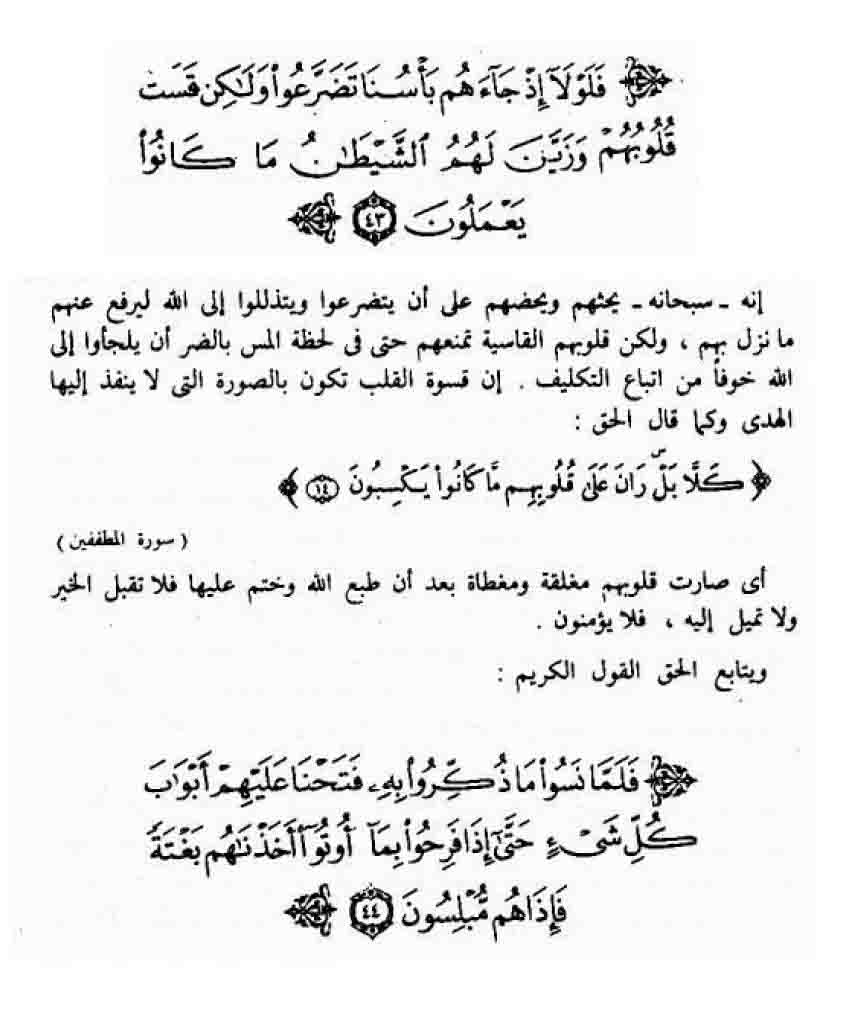 ﴿ فَلَوْلَآ إِذْ جَآءَهُم بَأْسُنَا تَضَرَّعُوا۟ وَلَـٰكِن قَسَتْ
قُلُوبُهُمْ وَزَيَّنَ لَهُمُ ٱلشَّيْطَـٰنُ مَا كَانُوا۟
يَعْمَلُونَ ٤٣ ﴾
إنه ـ سبحانه ـ يحثهم ويحضهم على أن يتضرعوا ويتذللوا إلى الله ليرفع عنهم
ما نزل بهم ، ولكن قلوبهم القاسية تمنعهم حتى فى لحظة المس بالضر أن يلجأوا إلى
الله خوفاً من اتباع التكليف . إن قسوة القلب تكون بالصورة التى لا ينفذ إليها
الهدى وكما قال الحق :
﴿ كَلَّا بَلْ ۜ رَانَ عَلَىٰ قُلُوبِهِم مَّا كَانُوا۟ يَكْسِبُونَ ١٤ ﴾
( سورة المطففين )
أى صارت قلوبهم مغلقة ومغطاة بعد أن طبع الله وختم عليها فلا تقبل الخير
ولا تميل إليه ، فلا يؤمنون .
ويتابع الحق القول الكريم :
﴿ فَلَمَّا نَسُوا۟ مَا ذُكِّرُوا۟ بِهِۦ فَتَحْنَا عَلَيْهِمْ أَبْوَٰبَ
كُلِّ شَىْءٍ حَتَّىٰٓ إِذَا فَرِحُوا۟ بِمَآ أُوتُوٓا۟ أَخَذْنَـٰهُم بَغْتَةً
فَإِذَا هُم مُّبْلِسُونَ ٤٤ ﴾